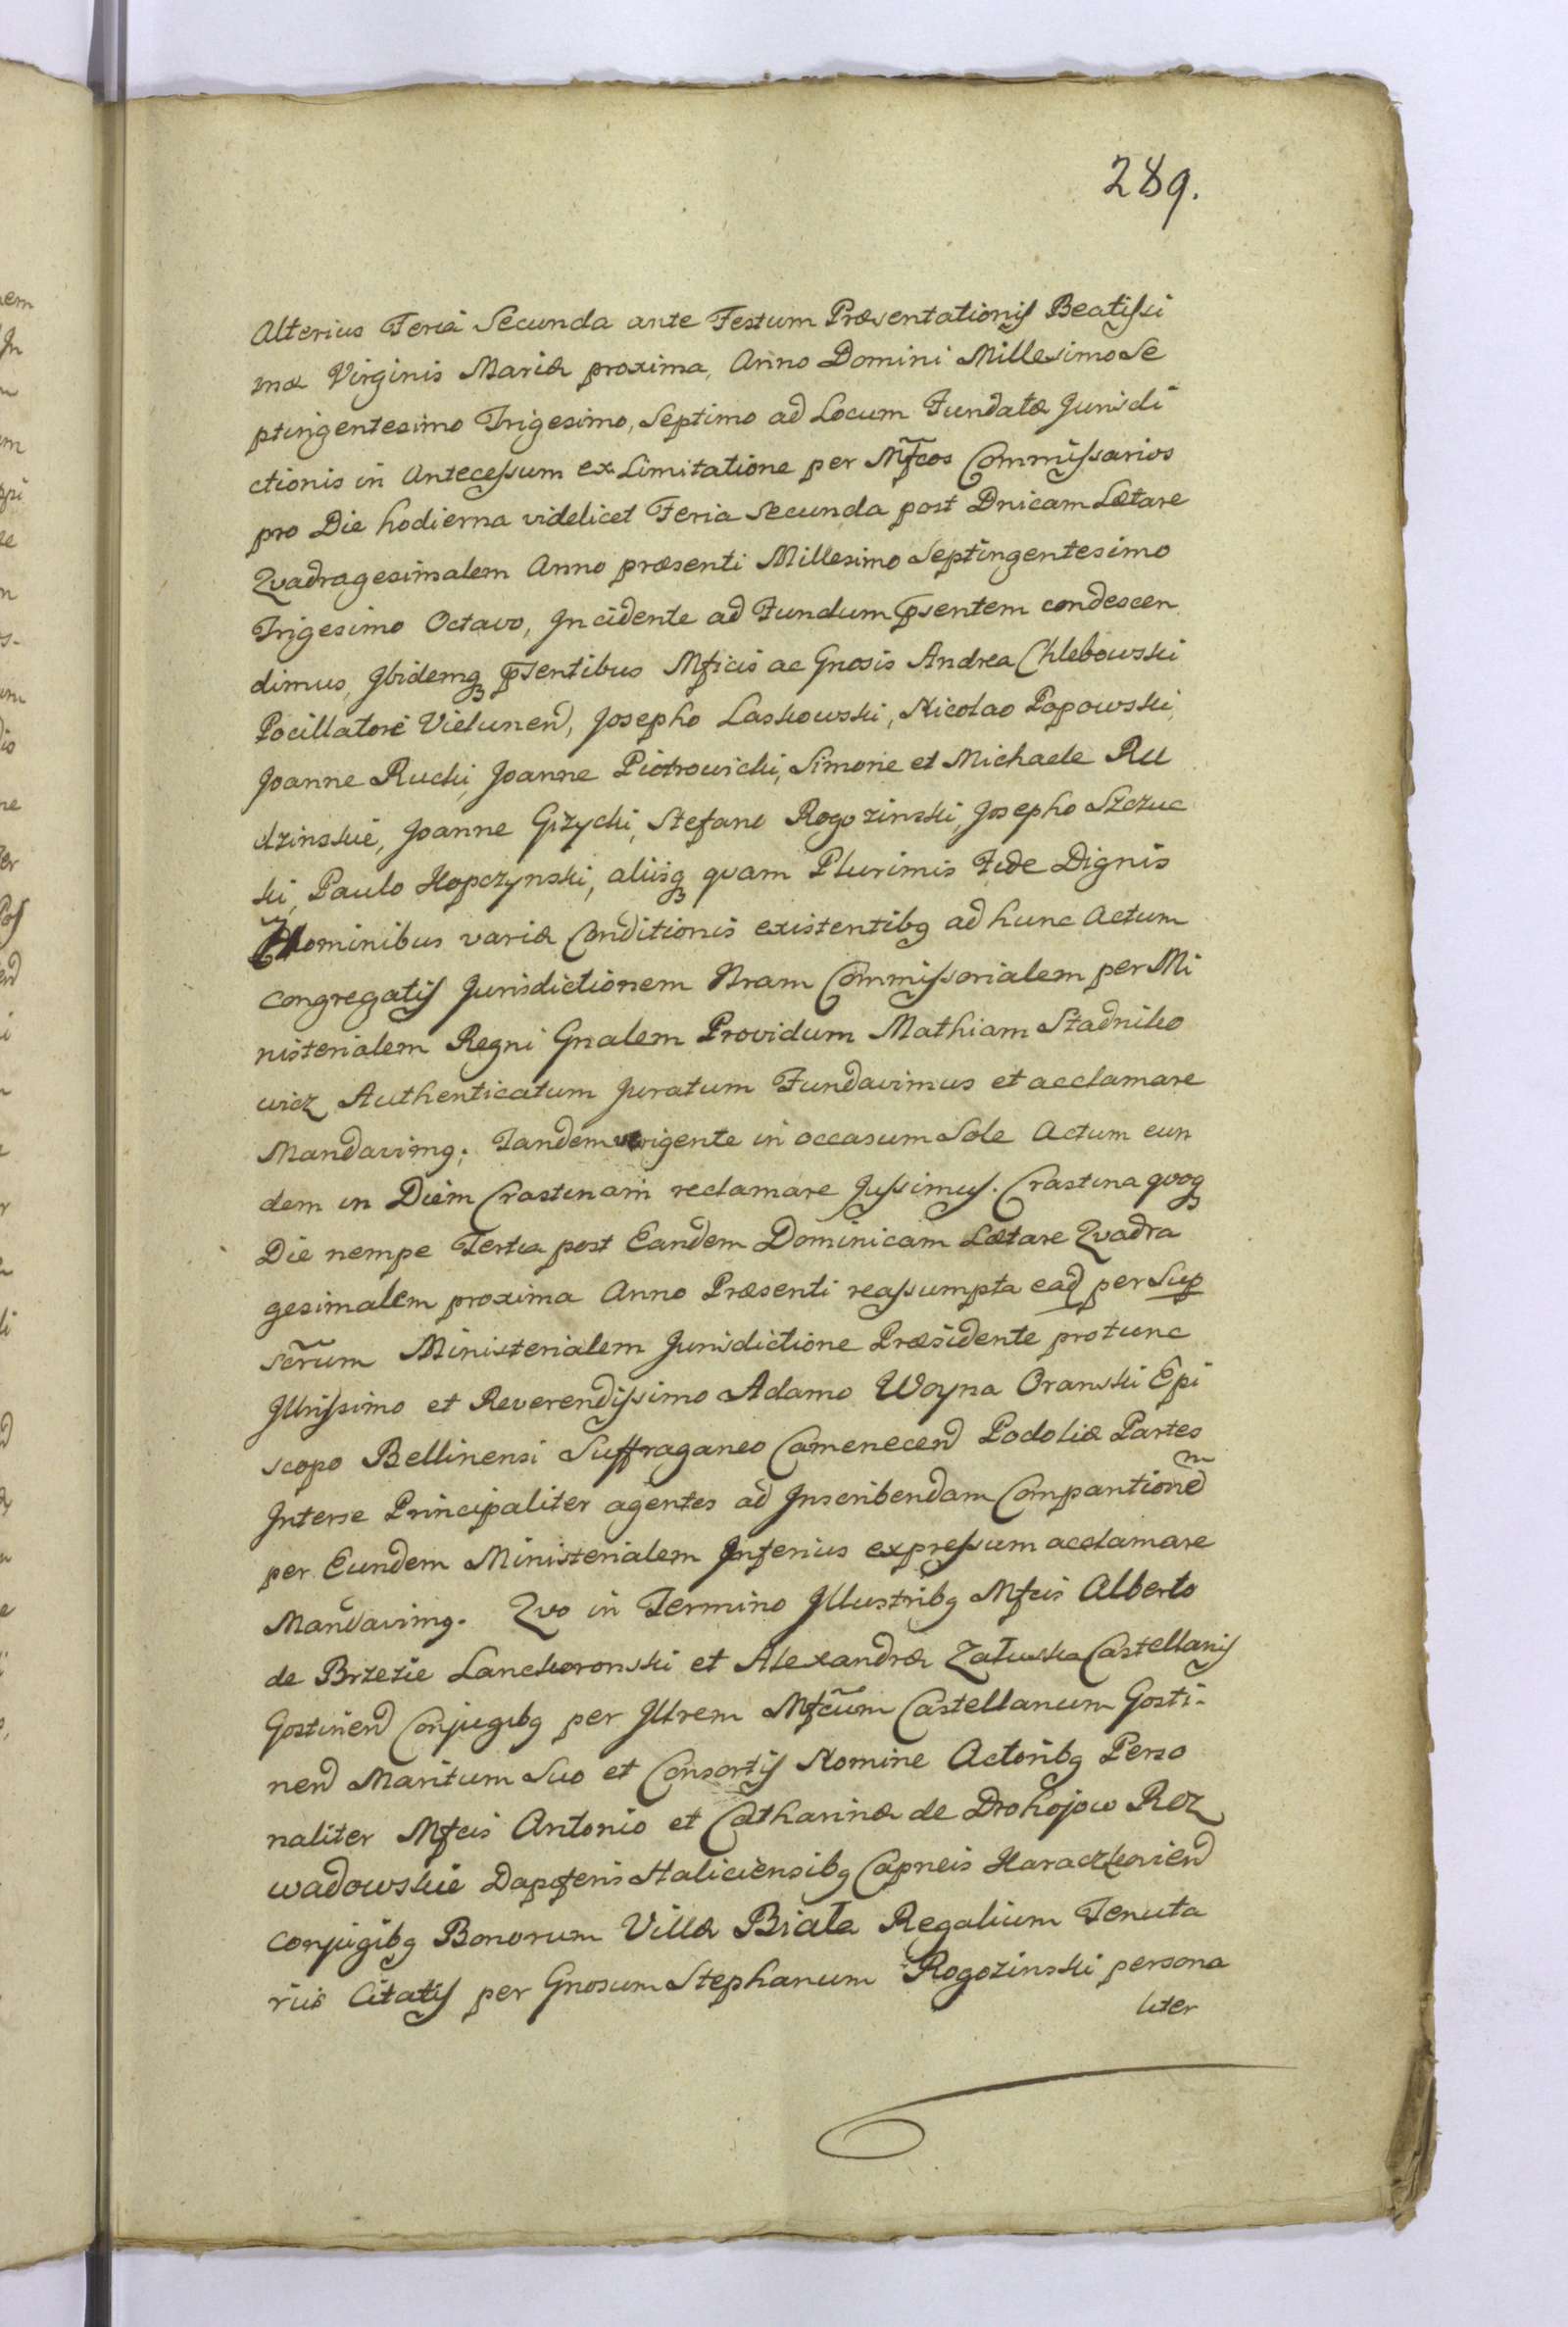 289.
Alterius Feria Secunda ante Festum Præsentationis Beatissi
mæ Virginis Mariæ proxima, Anno Domini Millesimo Se
ptingentesimo Trigesimo, Septimo ad Locum Fundatæ Jurisdi
ctionis in Antecessum ex Limitatione per Mfcos Commissarios
pro Die hodierna videlicet Feria Secunda post Dnicam Lætare
Qvadragesimalem Anno præsenti Millesimo Septingentesimo
Trigesimo Octavo, Incidente ad Fundum p̄sentem condescen
dimus, Ibidemq3 p̄sentibus Mficis ac Gnosis Andrea Chlebowski
Pocillatore Vielunen̄, Josepho Laskowski, Nicolao Popowski,
Joanne Rucki, Joanne Piotrowicki, Simone et Michaele Ru
dzinskie, Joanne Gizycki, Stefano Rogozinski, Josepho Szczuc
ki, Paulo Kopczynski, aliisq3 qvam Plurimis Fide Dignis
Hominibus variæ Conditionis existentibg ad hunc Actum
congregatis Jurisdictionem Nram Commissorialem per Mi
nisterialem Regni Gnalem Providum Mathiam Stadniko
wicz Authenticatum Juratum Fundavimus et acclamare
Mandavimg. Tandem vergente in occasum Sole Actum eun
dem in Diem Crastinam reclamare Jussimus. Crastina qvoq3
Die nempe Tertia post Eandem Dominicam Lætare Qvadra
gesimalem proxima Anno Præsenti reassumpta ead per Sup
scr̃um Ministerialem Jurisdictione Præsidente protunc
Illrissimo et Reverendissimo Adamo Woyna Oranski Epi
scopo Bellinensi Suffraganeo Camenecen̄ Podoliæ Partes
Interse Principaliter agentes ad Inscribendam Comparitionem
per Eundem Ministerialem Inferius expressum acclamare
Mandavimg. Qvo in Termino Illustribg Mfcis Alberto
de Brzezie Lanckoronski et Alexandra Załuska Castellanis
Gostinen̄ Conjugibg per Illrem Mfcũm Castellanum Gosti-
nen̄ Maritum Suo et Consortis Nomine Actoribg Perso
naliter Mfcis Antonio et Catharina de Drohojow Roz
wadowskie Dapiferis Haliciensibg Capneis Karaczkovien̄
conjugibg Bonorum Villæ Biała Regalium Tenuta
riis Citatis per Gnosum Stephanum Rogozinski persona
liter